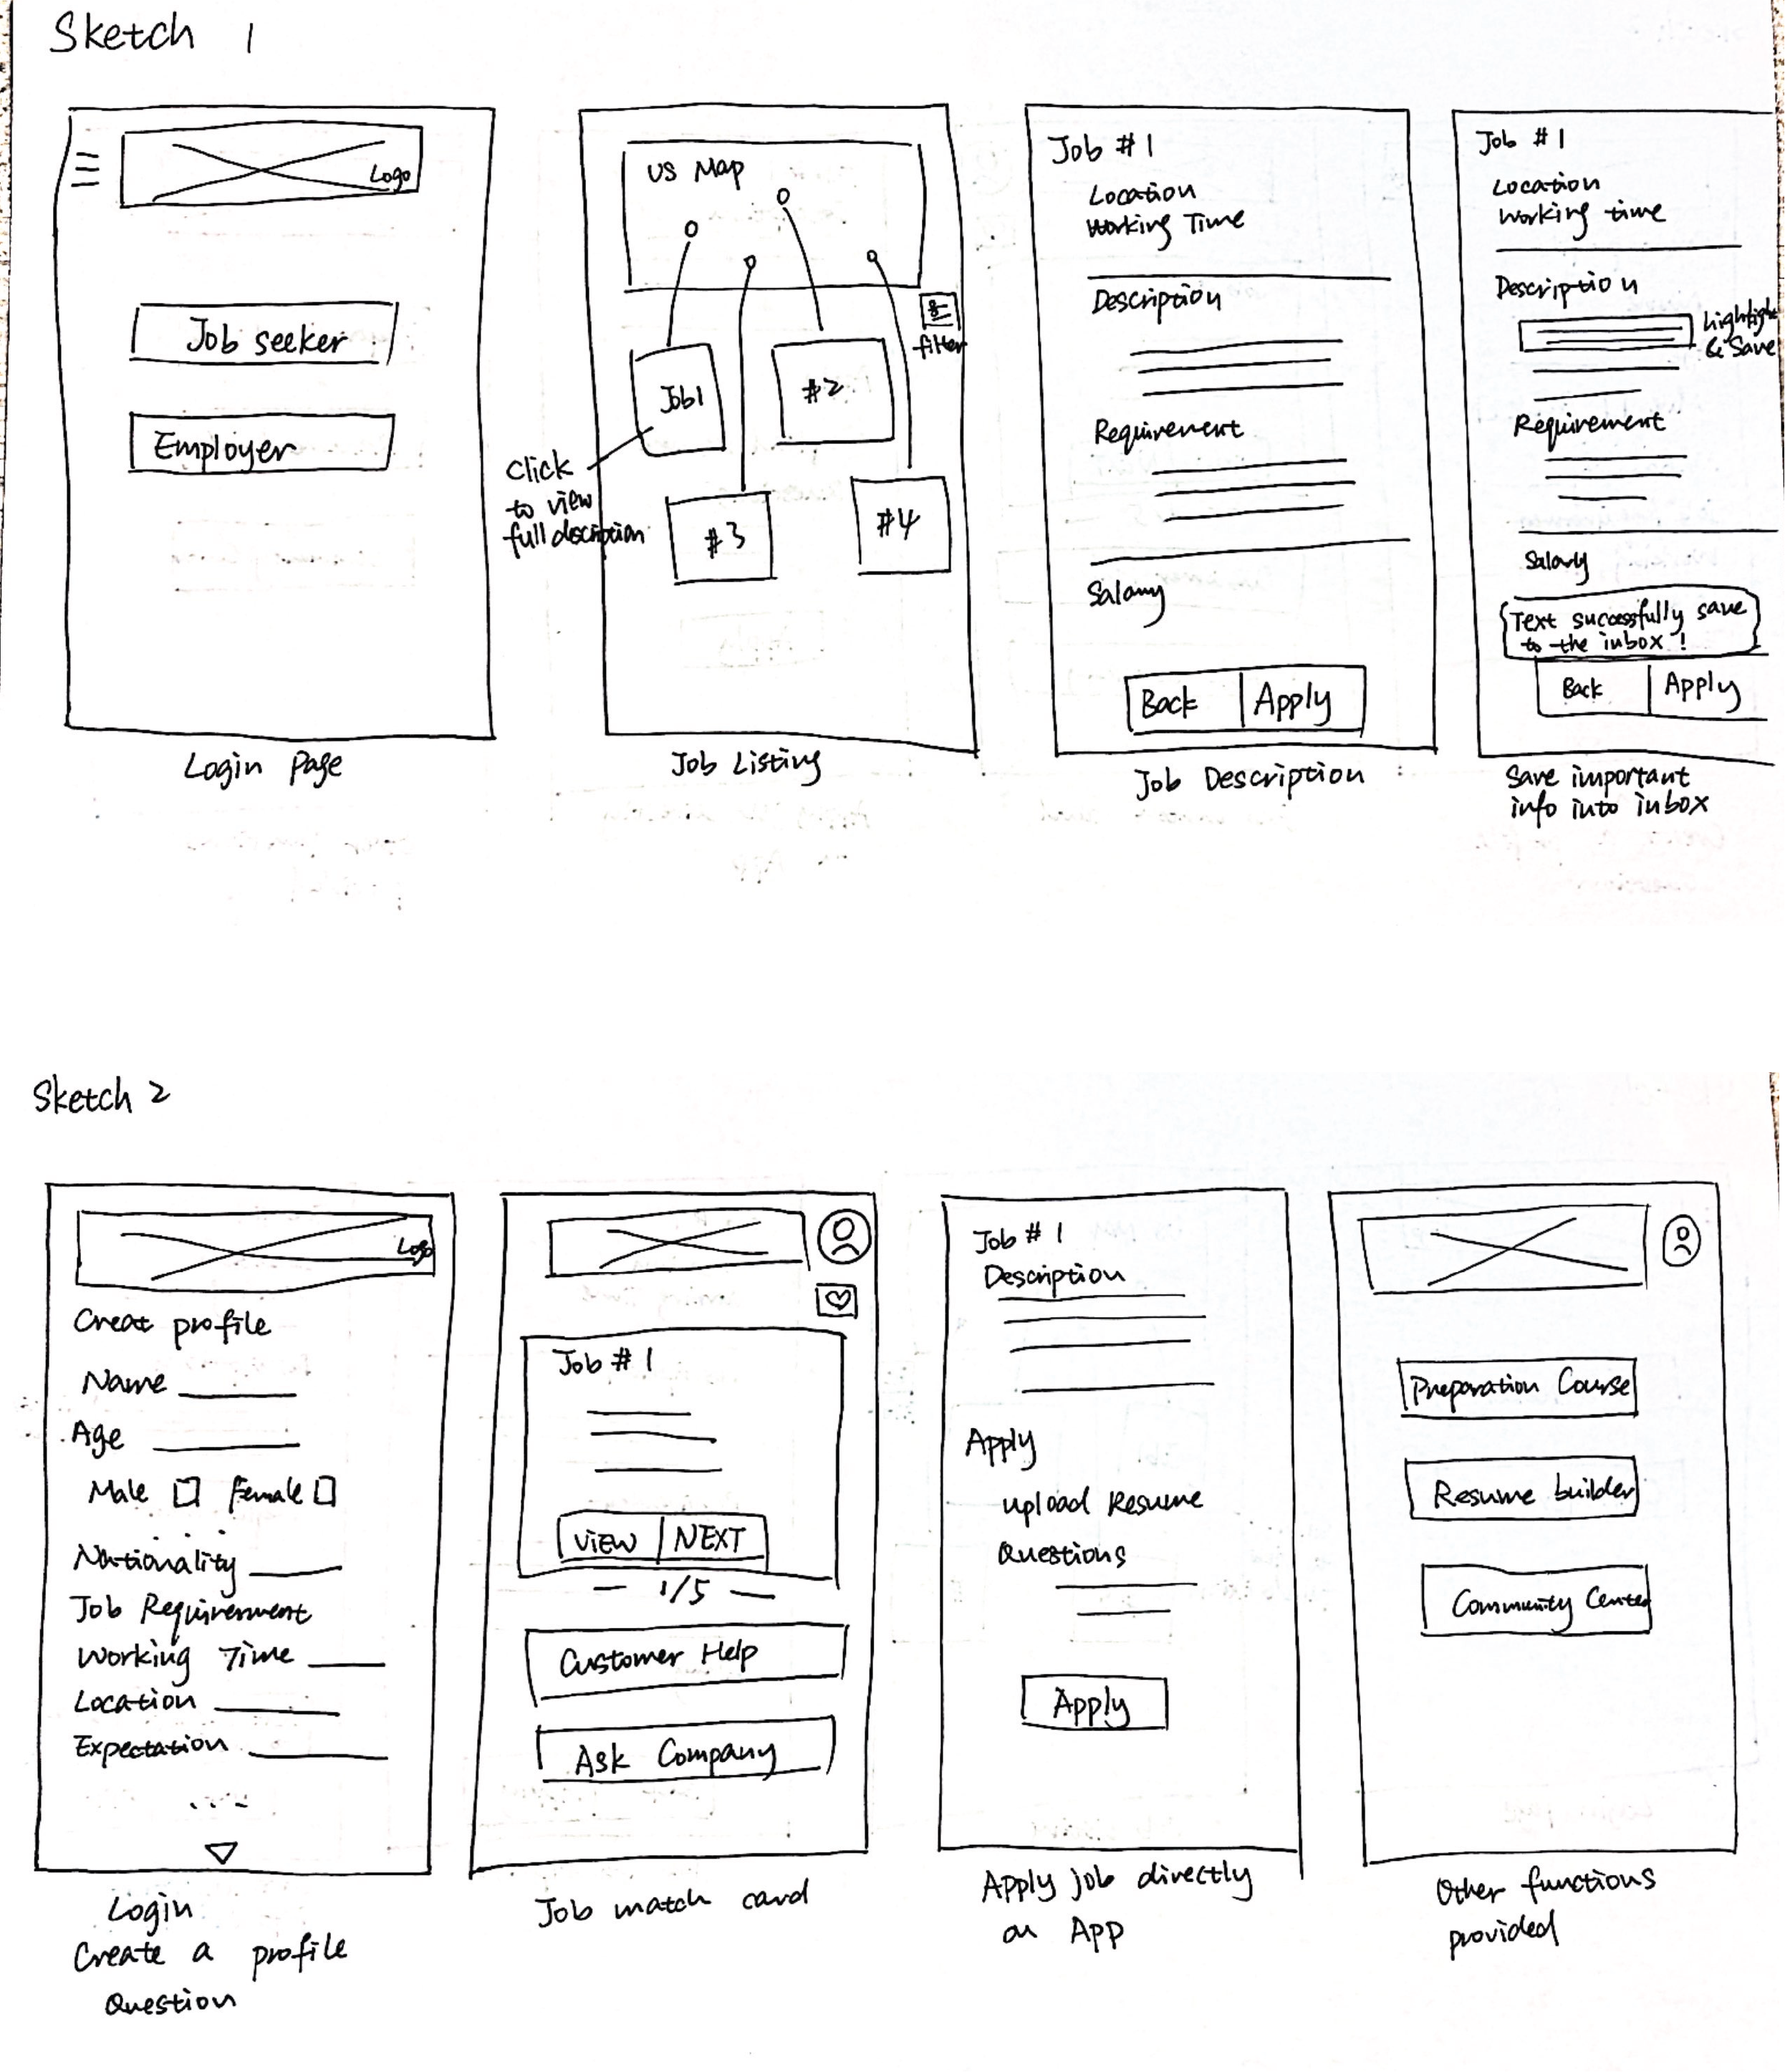 Sketch 1
Logo
Job seeker
Employer
Login Page
US Map
filter
Job1
#2
#3
#4
Click
to view
full discription
Job Listing
Job #1
Location
Working Time
Description
Requirement
Salary
Back
Apply
Job Description
Job #1
Location
Working time
Description
highlight
& Save
Requirement
Salary
Text successfully save
to the inbox!
Back
Apply
Save important
info into inbox
Sketch 2
Logo
Creat profile
Name
Age
Male Female
Nationality
Job Requirement
Working Time
Location
Expectation
...
Login
Create a profile
Question
Job #1
VIEW
NEXT
1/5
Customer Help
Ask Company
Job match card
Job #1
Description
Apply
upload Resume
Questions
Apply
Apply job directly
on App
Preparation Course
Resume builder
Community Center
Other functions
provided